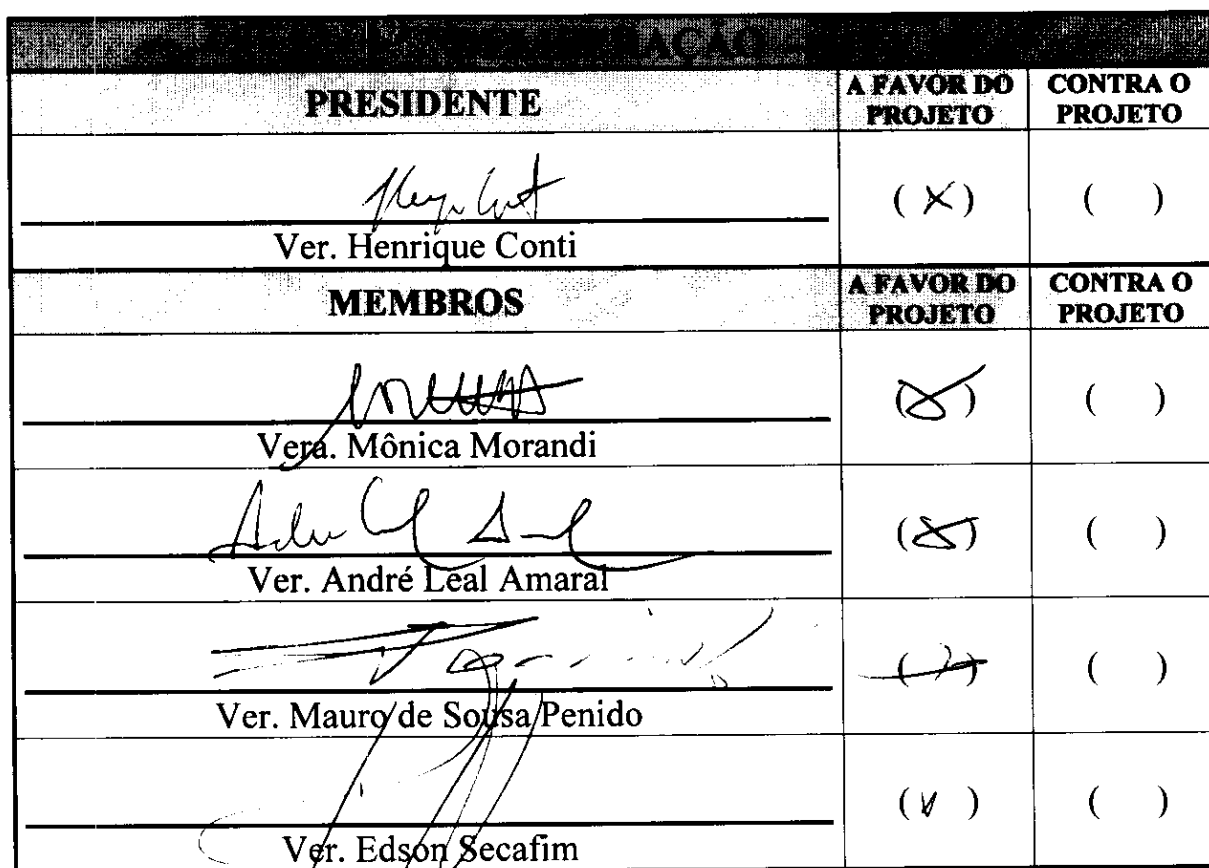 PRESIDENTE
A FAVOR DO PROJETO
CONTRA O PROJETO
( X )
( )
Ver. Henrique Conti
MEMBROS
A FAVOR DO PROJETO
CONTRA O PROJETO
( X )
( )
Vera. Mônica Morandi
( X )
( )
Ver. André Leal Amaral
( )
( )
Ver. Mauro de Sousa Penido
( )
( )
Ver. Edson Secafim